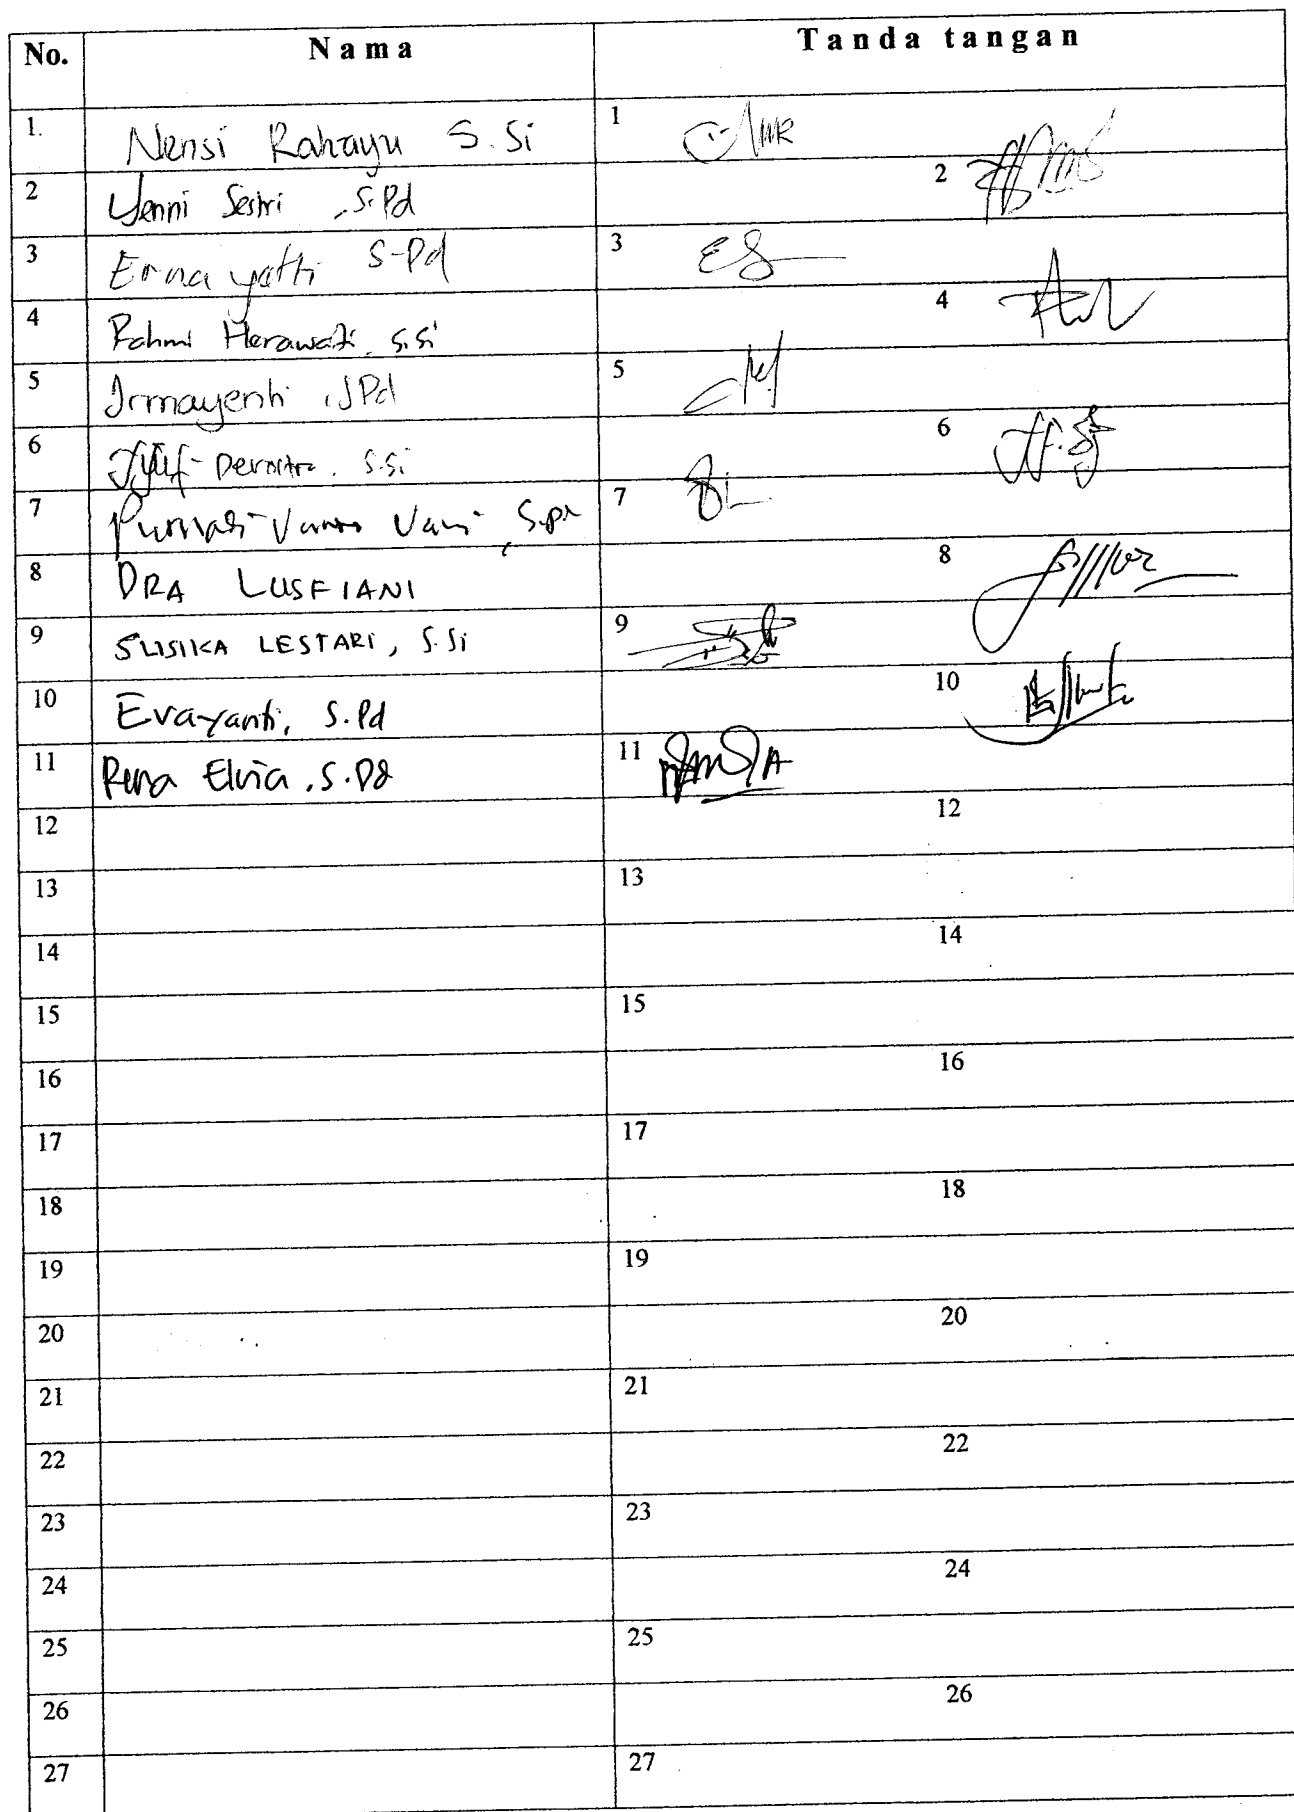 No. Nama Tanda tangan
1. Nensi Rahayu S.Si 1
2 Yenni Sestri, S.Pd 2
3 Ernayatti S-Pd 3
4 Rahmi Herawati, S.Si 4
5 Irmayenti, S.Pd 5
6 S.Si 6
7 7
8 DRA LUSFIANI 8
9 SUSIKA LESTARI, S.Si 9
10 Evayanti, S.Pd 10
11 Rena Elvia, S.Pd 11
12 12
13 13
14 14
15 15
16 16
17 17
18 18
19 19
20 20
21 21
22 22
23 23
24 24
25 25
26 26
27 27